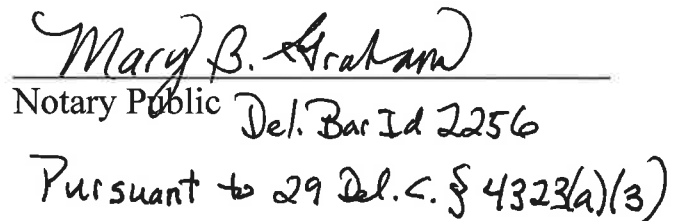 Mary B. Graham
Notary Public Del. Bar Id 2256
Pursuant to 29 Del. C. § 4323(a)(3)